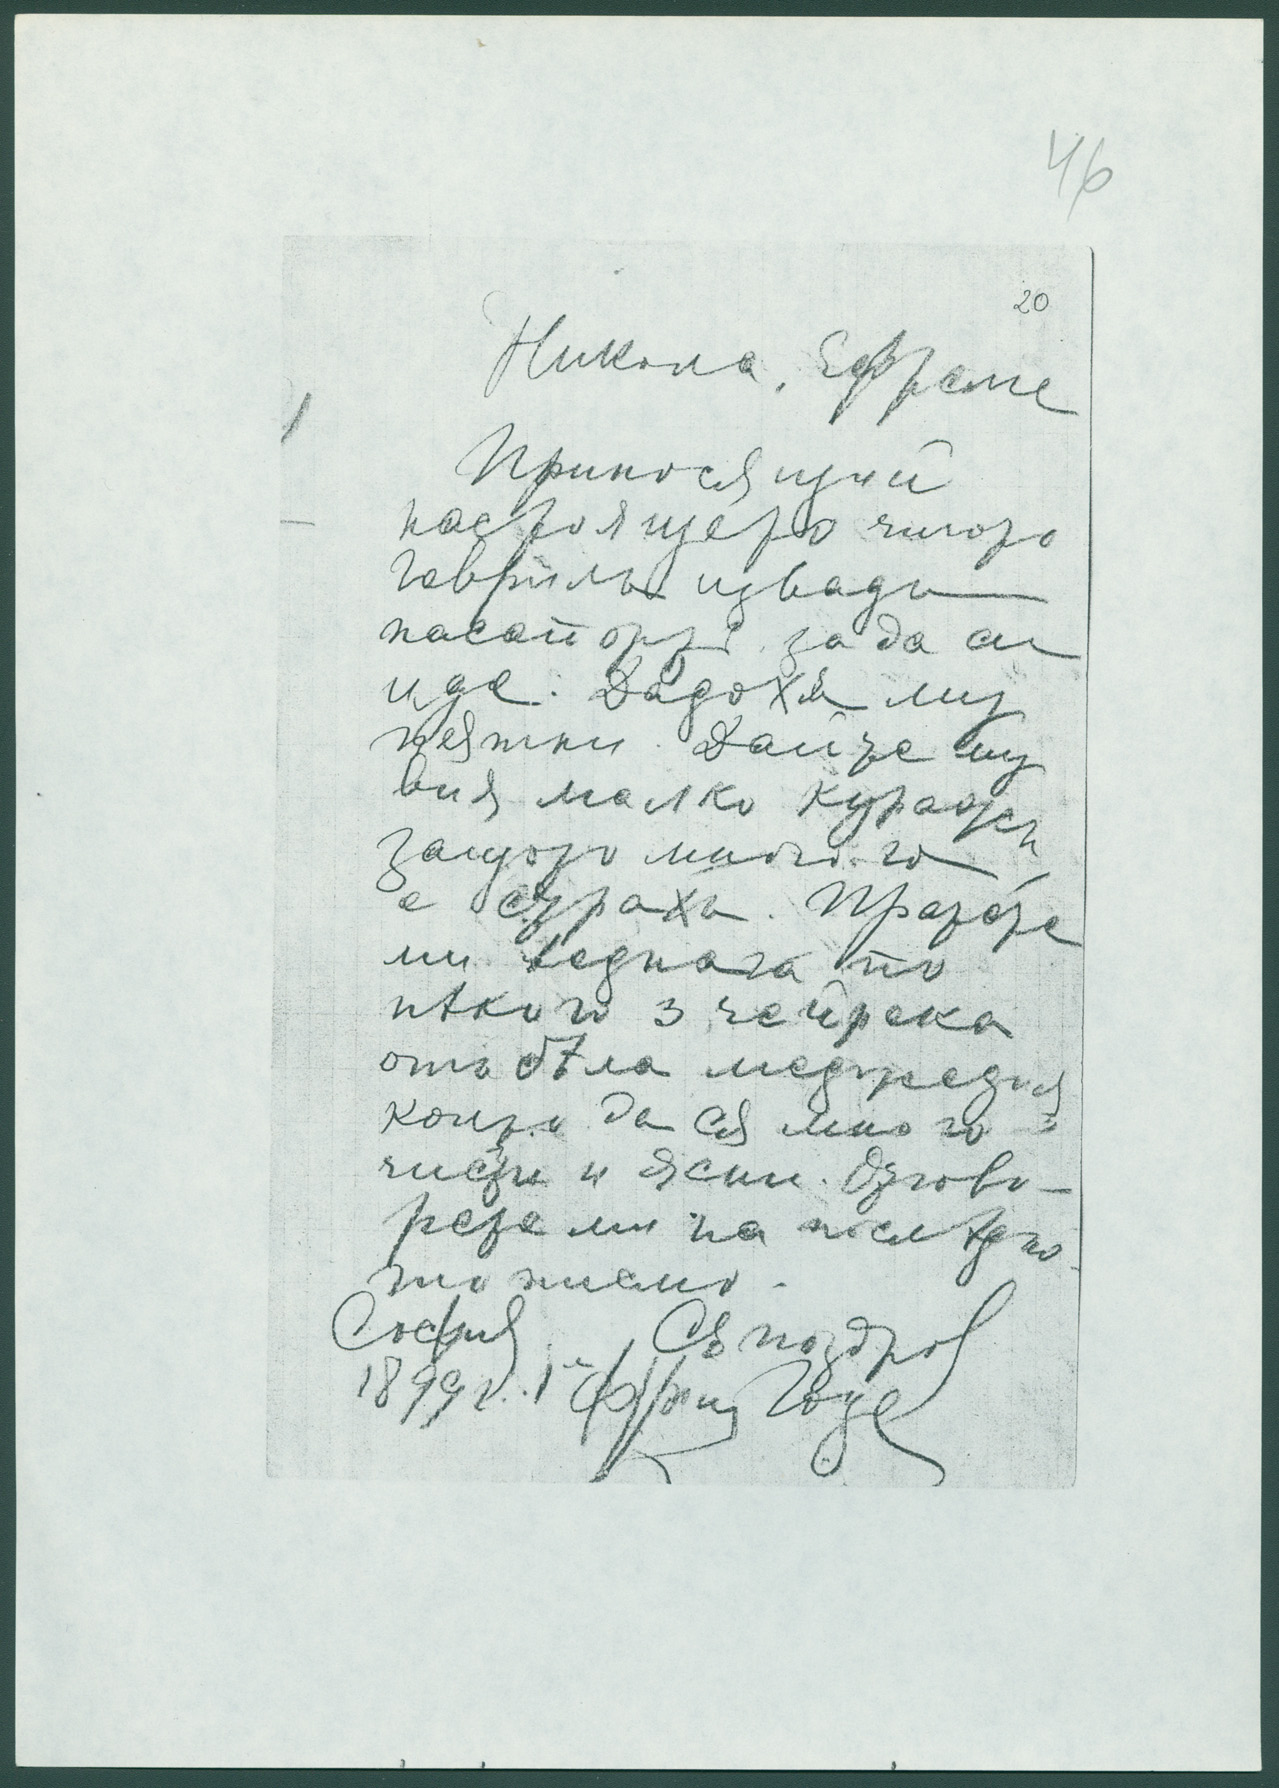 46
20
Никола, Ефреме
1
Приносящий
настоящето чичо
Гаврилъ извади
пасапортъ за да си
иде. Дадохѫ му
пѫтни. Дайте му
вия малко куражъ
защото много го
е страхъ. Пратете
ми веднага по
нѣкого 3 чейрека
отъ бѣла меджедия
които да сѫ много
чисти и ясни. Отгово-
рете ми на послѣдно-
то писмо.
София Съ поздрав
1899 г. 1й Гоце